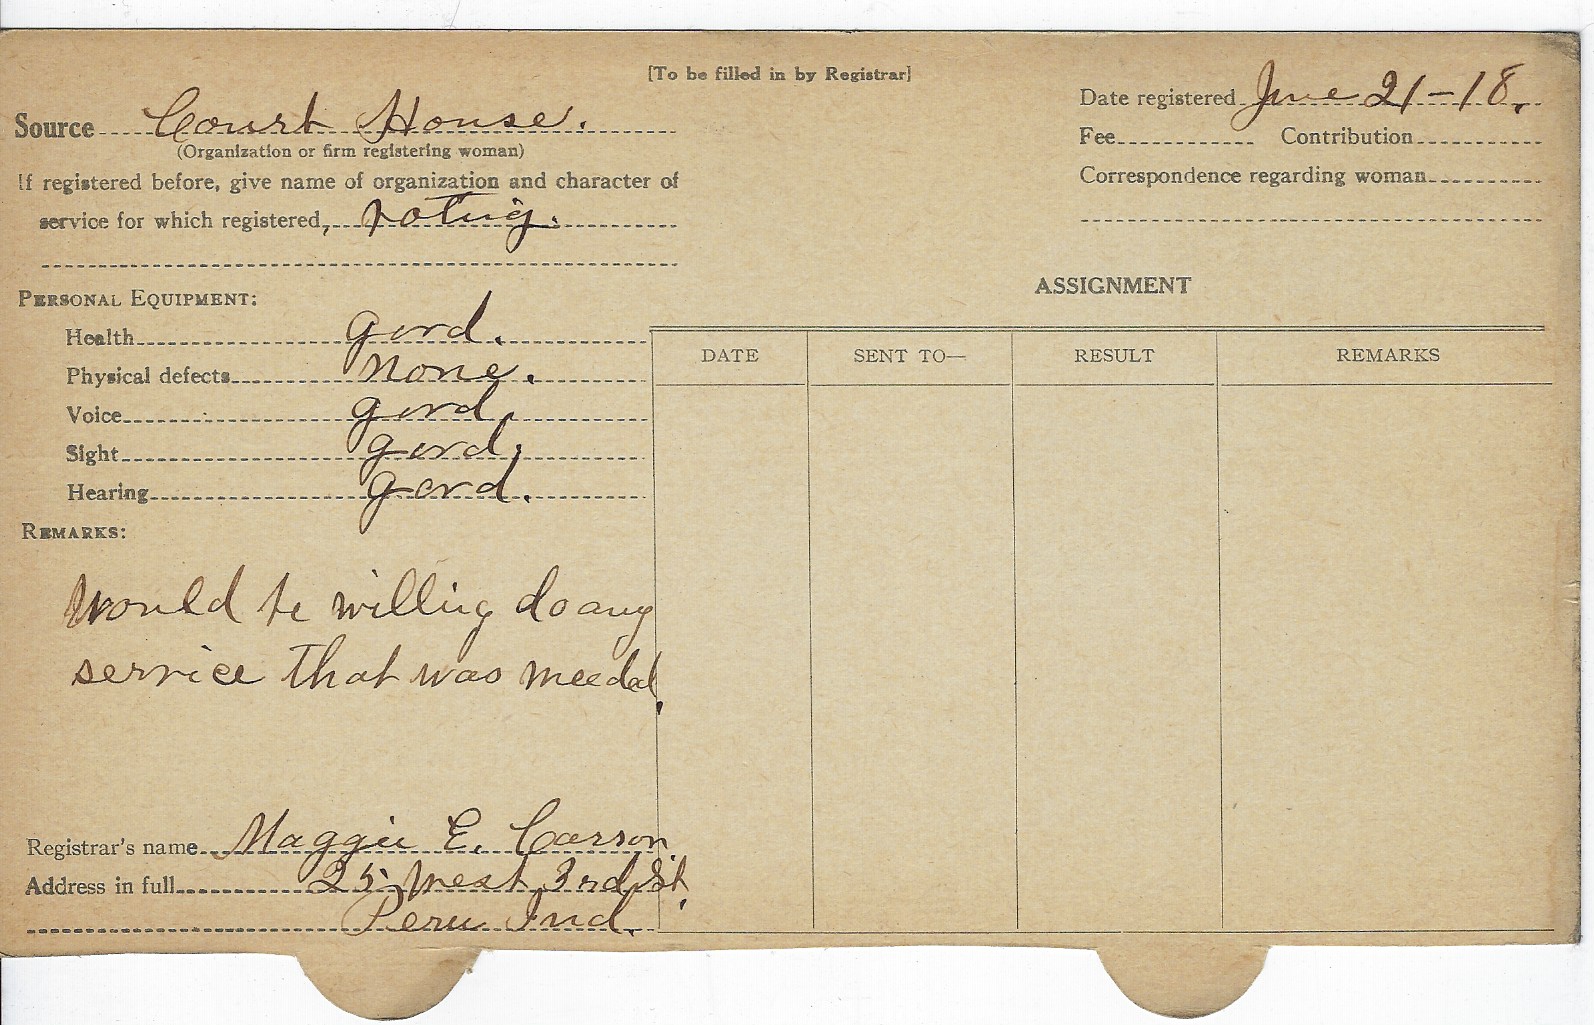 [To be filled in by Registrar]
Source Court House.
(Organization or firm registering woman)
If registered before, give name of organization and character of
service for which registered, voting.
Date registered June 21-18.
Fee Contribution
Correspondence regarding woman
PERSONAL EQUIPMENT:
Health good.
Physical defects none.
Voice good.
Sight good.
Hearing good.
REMARKS:
Would be willing do any
service that was needed.
Registrar's name Maggie E. Carson
Address in full 25 West 3rd St.
Peru Ind.
ASSIGNMENT
DATE SENT TO— RESULT REMARKS